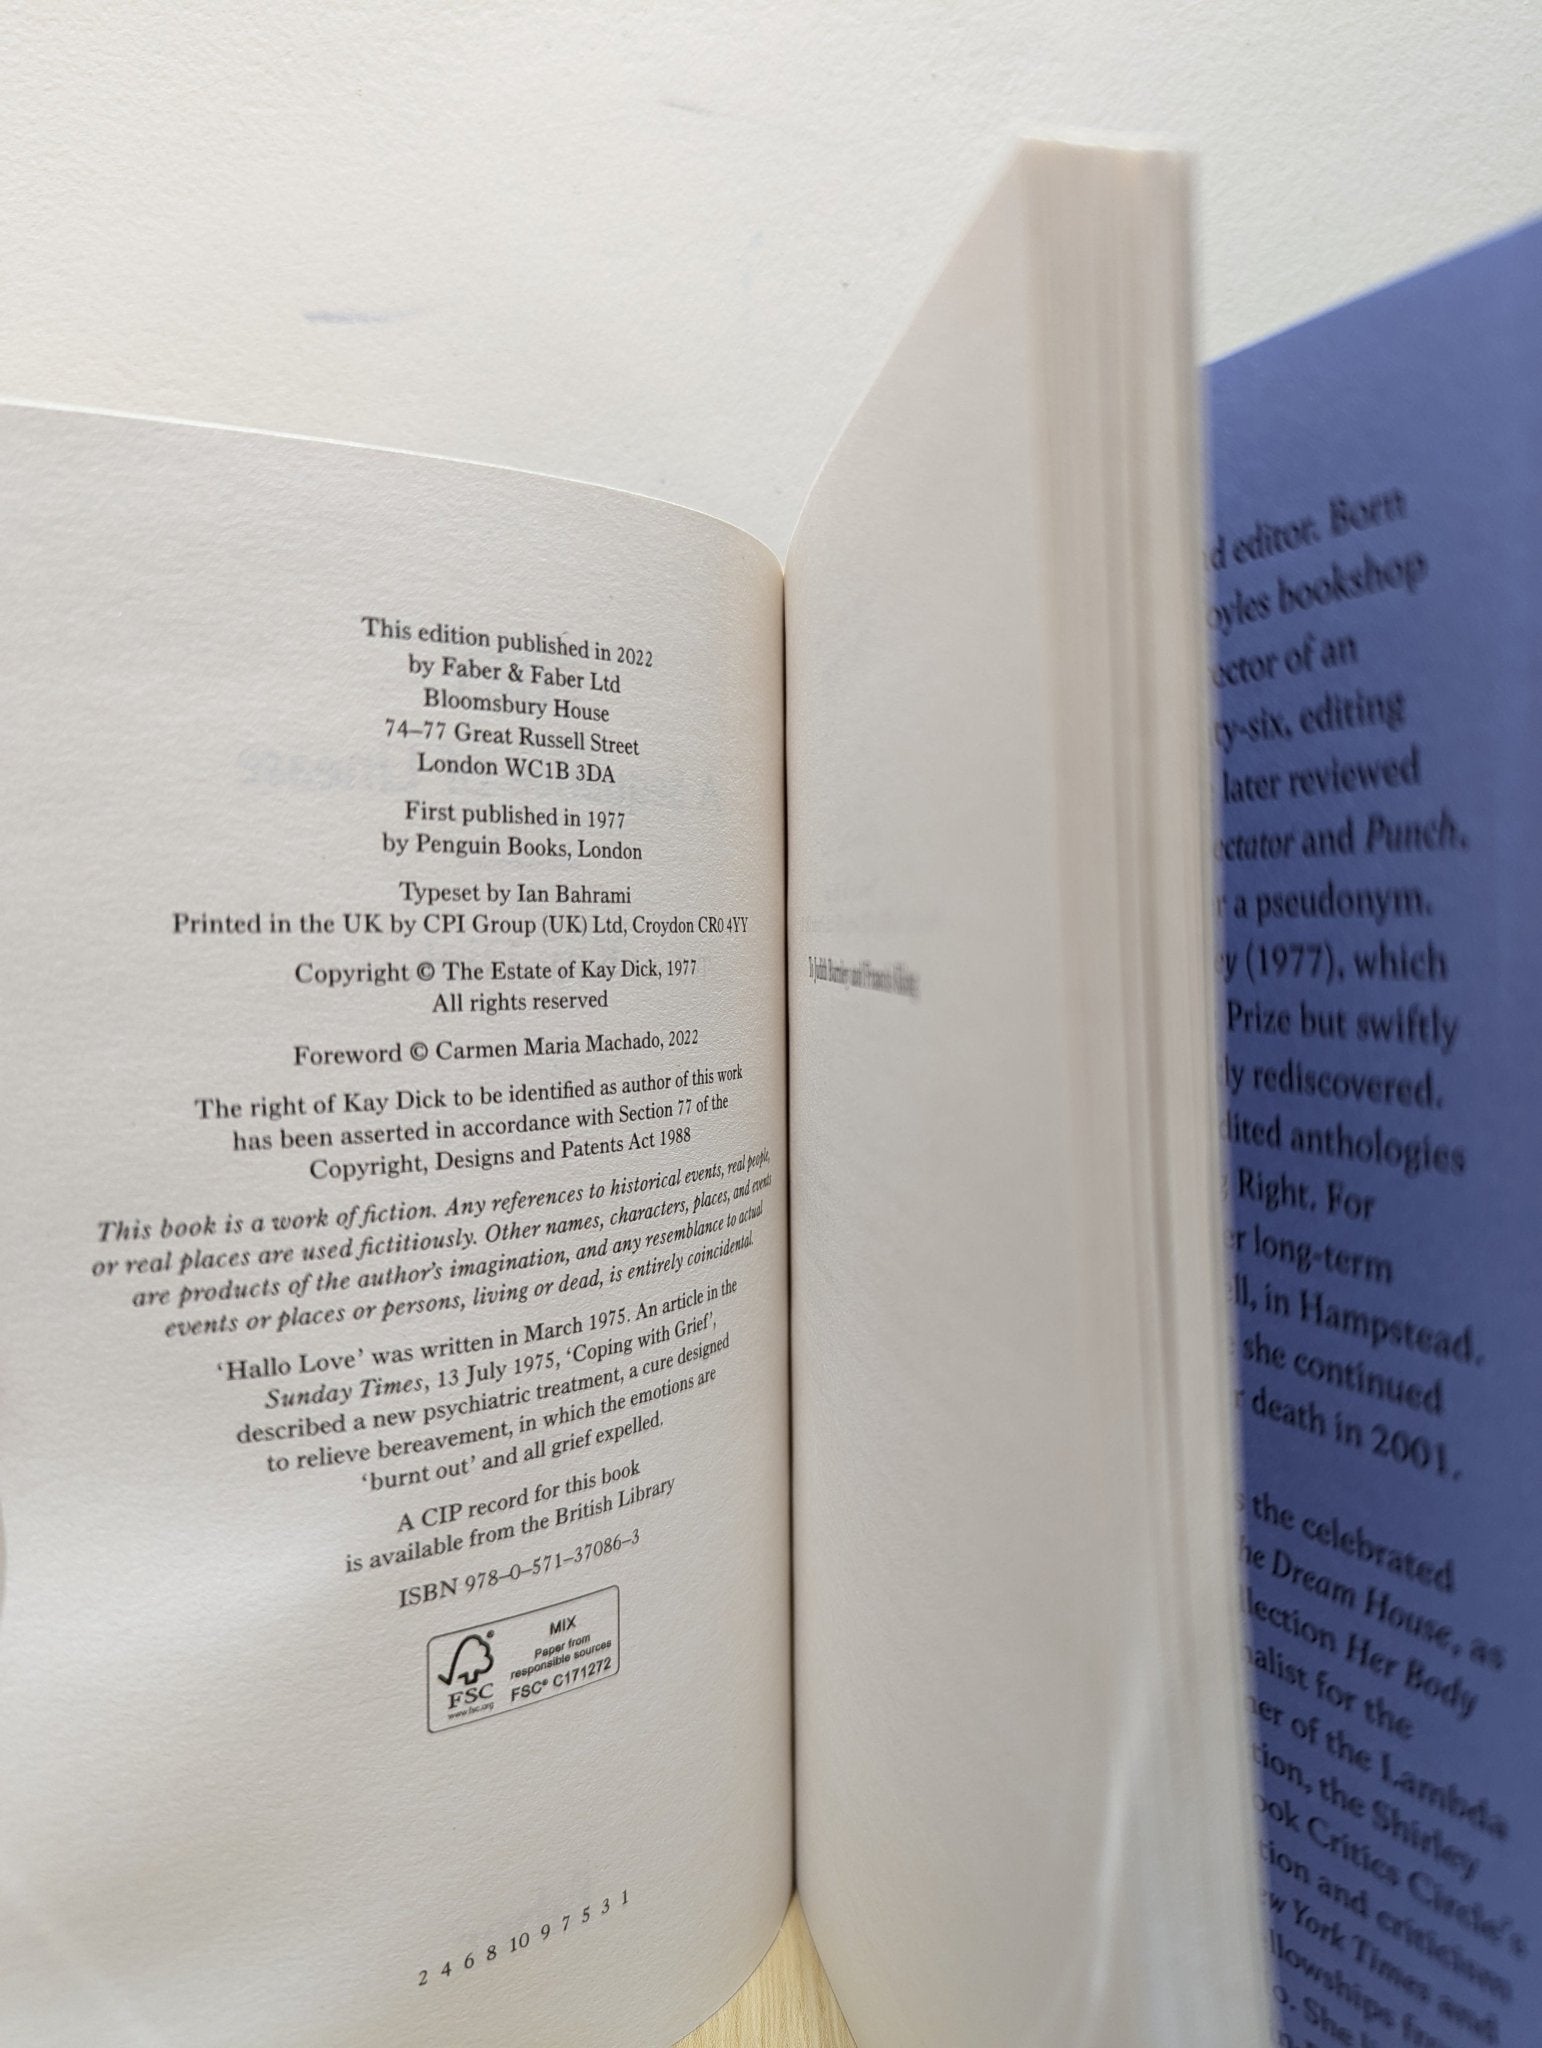 This edition published in 2022
by Faber & Faber Ltd
Bloomsbury House
74–77 Great Russell Street
London WC1B 3DA
First published in 1977
by Penguin Books, London
Typeset by Ian Bahrami
Printed in the UK by CPI Group (UK) Ltd, Croydon CR0 4YY
Copyright © The Estate of Kay Dick, 1977
All rights reserved
Foreword © Carmen Maria Machado, 2022
The right of Kay Dick to be identified as author of this work
has been asserted in accordance with Section 77 of the
Copyright, Designs and Patents Act 1988
This book is a work of fiction. Any references to historical events, real people,
or real places are used fictitiously. Other names, characters, places, and events
are products of the author's imagination, and any resemblance to actual
events or places or persons, living or dead, is entirely coincidental.
'Hallo Love' was written in March 1975. An article in the
Sunday Times, 13 July 1975, 'Coping with Grief',
described a new psychiatric treatment, a cure designed
to relieve bereavement, in which the emotions are
'burnt out' and all grief expelled.
A CIP record for this book
is available from the British Library
ISBN 978–0–571–37086–3
FSC®
www.fsc.org
MIX
Paper from
responsible sources
FSC® C171272
2 4 6 8 10 9 7 5 3 1
To Judith Burnley and
editor. Born
bookshop
of an
editing
later reviewed
and Punch,
a pseudonym.
(1977), which
Prize but swiftly
rediscovered.
anthologies
Right. For
long-term
in Hampstead.
she continued
death in 2001.
the celebrated
Dream House, as
Her Body
for the
of the Lambda
the Shirley
Critics Circle's
and criticism
York Times and
She